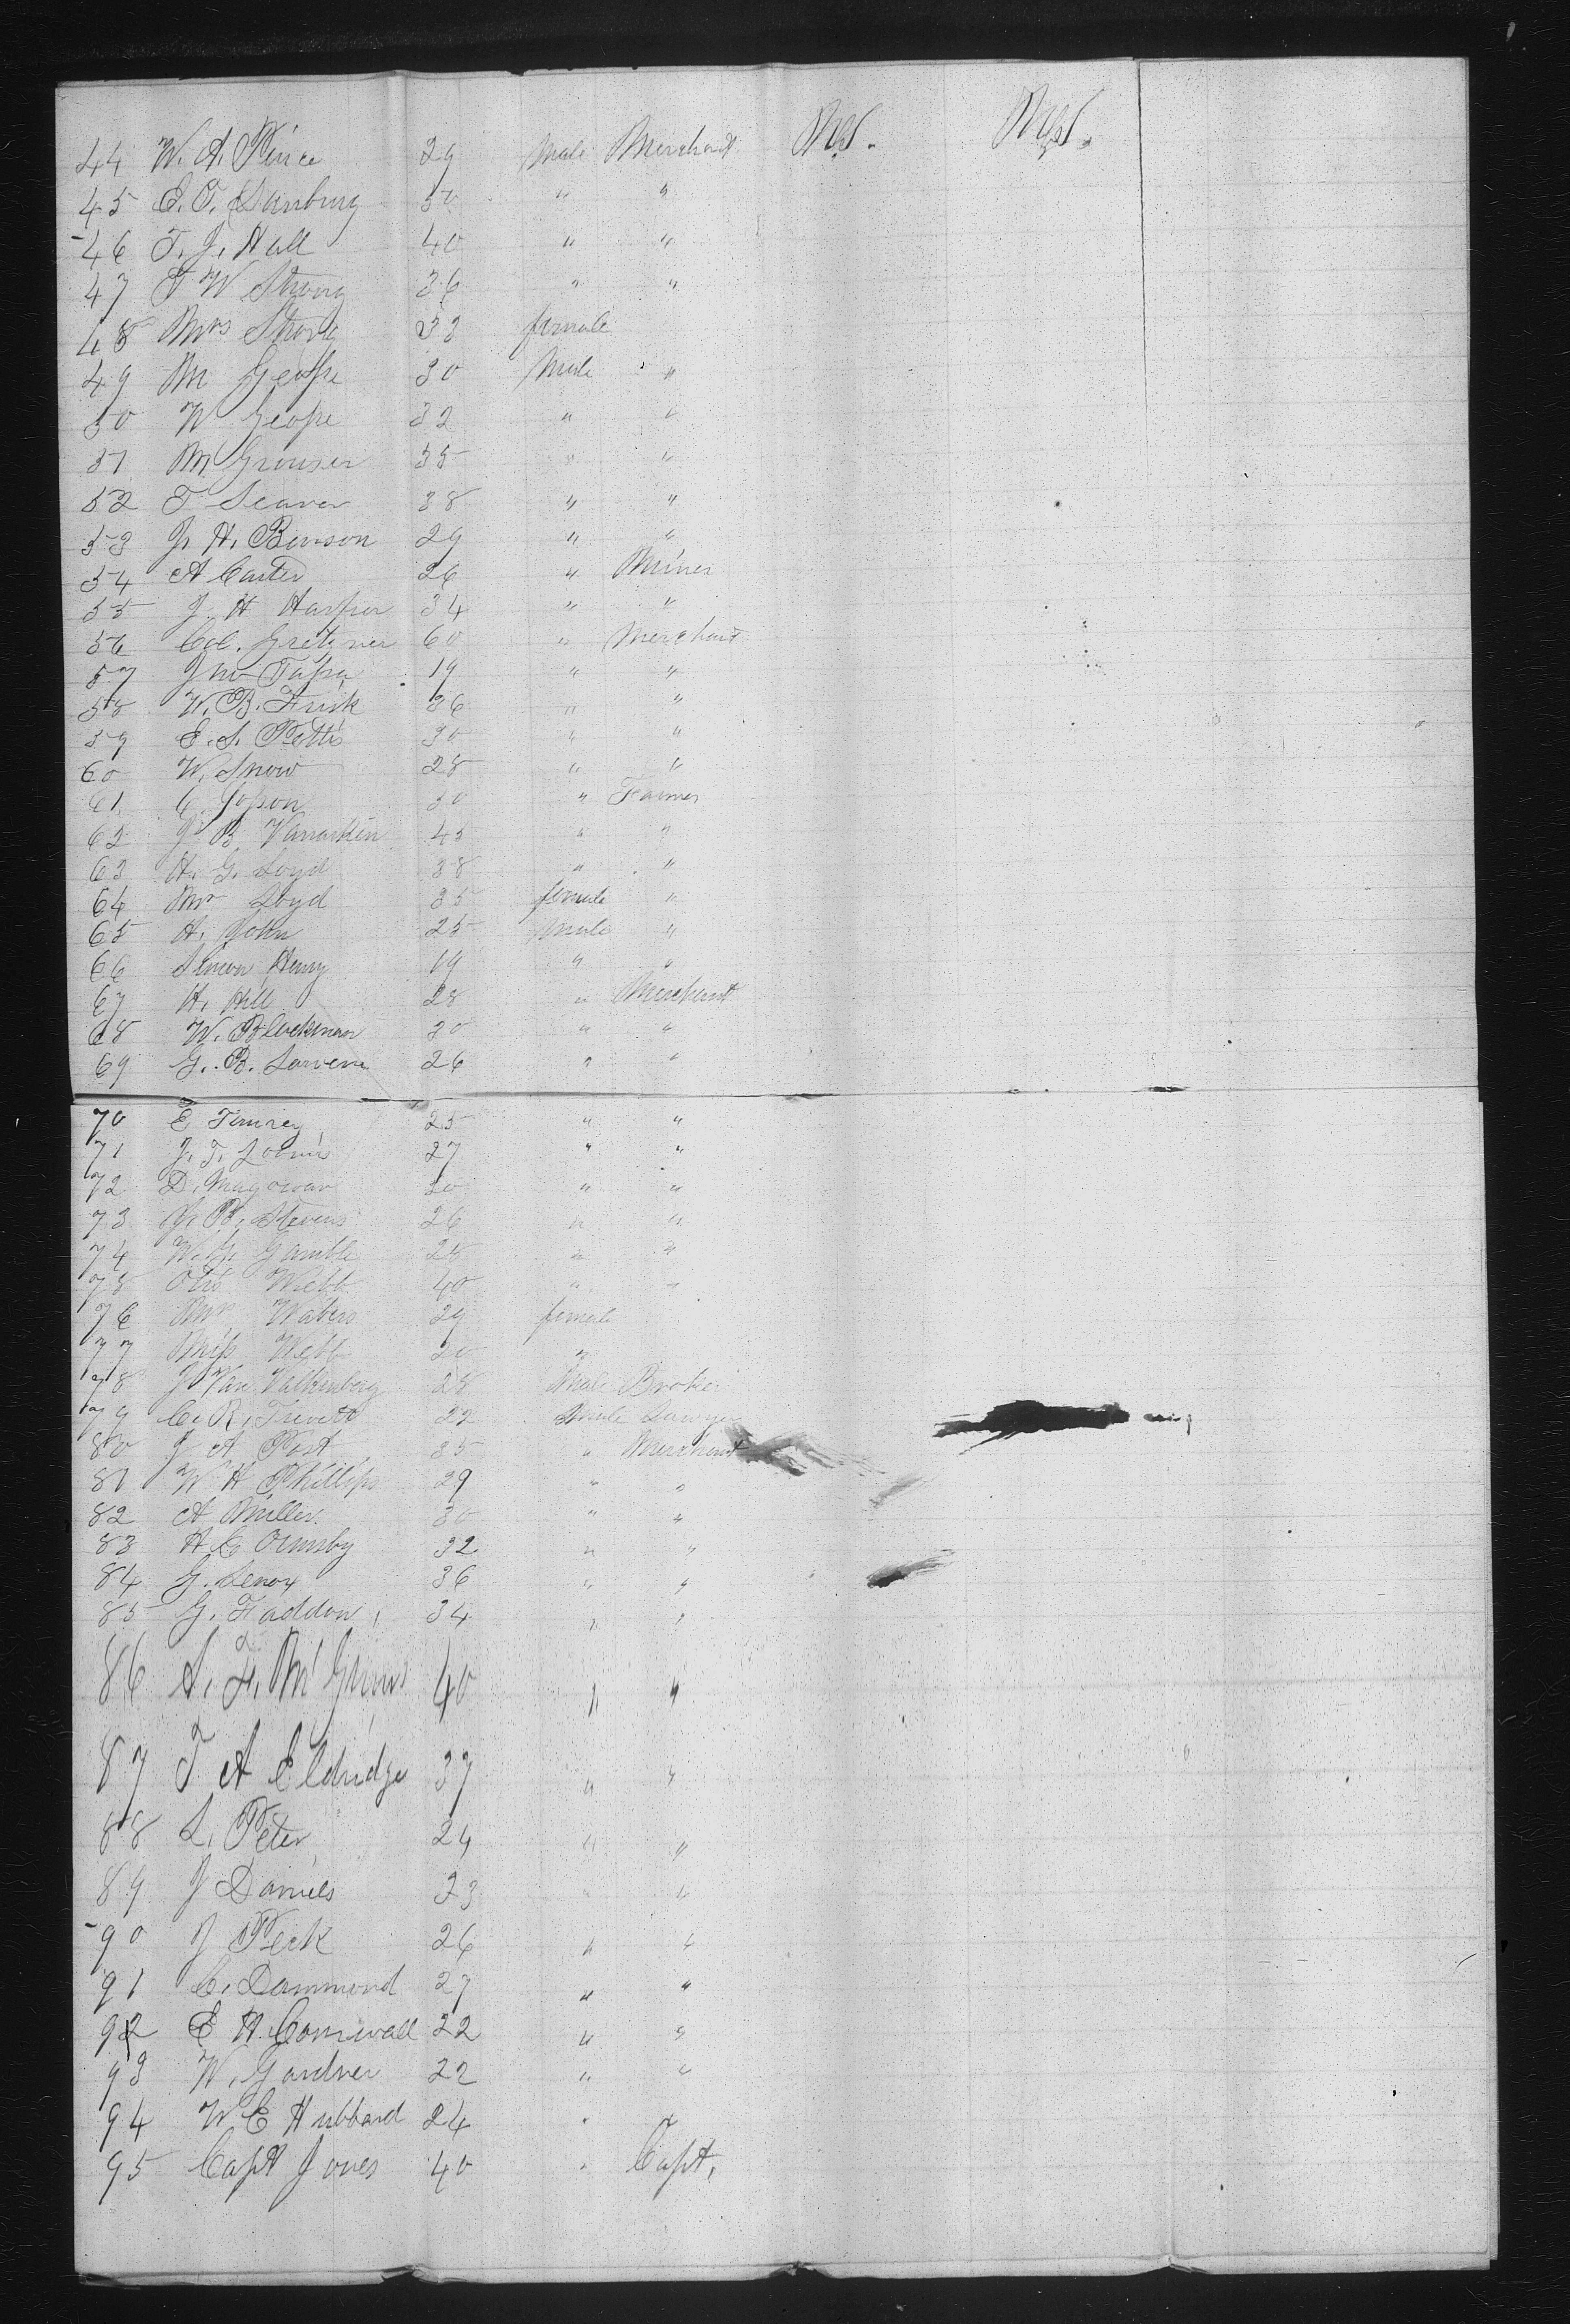 44 W. A. Pince 29 Male Merchant
45 E. T. Danbury 50 " "
46 T. J. Hall 40 " "
47 T W Strong 36 " "
48 Mrs Strong 33 female
49 M 30 Male "
50 W 32 " "
51 M Grouser 35 " "
52 T Seaver 38 " "
53 J. H. Benson 29 " "
54 A Carter 26 " Miner
55 J. H Harper 34 " "
56 Col. Gretzner 60 " Merchant
57 Jno Tapia 19 " "
58 W. B. Fisk 36 " "
59 E. S. Pettis 30 " "
60 W. Snow 28 " "
61 C. Jopson 30 " Farmer
62 J B Vanarkin 45 " "
63 H. G. Loyd 38 " "
64 Mrs Loyd 35 female "
65 H. John 25 Male "
66 Simon Henry 19 " "
67 H. Hill 28 " Merchant
68 W. Blackman 30 " "
69 G. B. 26 " "
70 E 25 " "
71 J. T. Loomis 27 " "
72 D. Magowan 30 " "
73 J. B. Stevens 26 " "
74 W. G. Gamble 28 " "
75 Otis Webb 40 " "
76 Mrs 29 female
77 Miss Webb 20 "
78 J Van Valkenberg 28 Male Broker
79 C. R. Trivett 22 Male Lawyer
80 J A Post 35 " Merchant
81 W H Phillips 29 " "
82 A Miller 30 " "
83 H C Ormsby 32 " "
84 G. Lenox 36 " "
85 G. Haddon 34 " "
86 S. F. 40 " "
87 T A Eldridge 37 " "
88 L. Peter 24 " "
89 J Daniels 23 " "
90 J Peck 26 " "
91 C. Dammond 27 " "
92 E H. Cornwall 22 " "
93 W. Gardner 22 " "
94 W E Hubbard 24 " "
95 Capt Jones 40 " Capt.